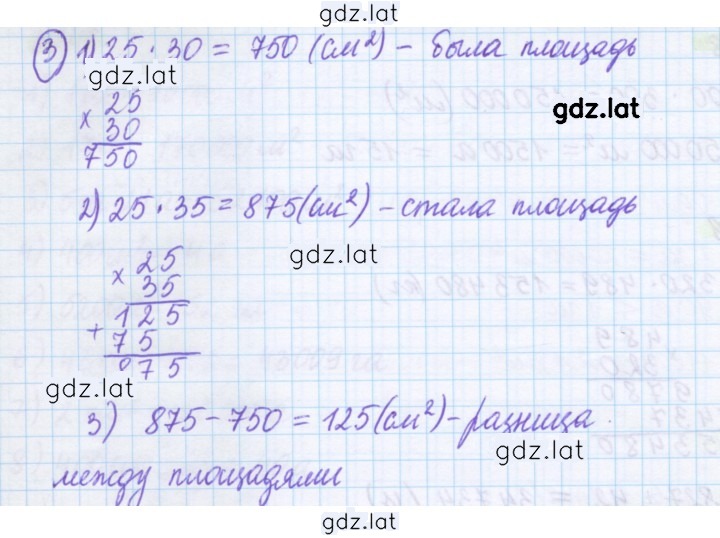 gdz.lat
3 1) 25 · 30 = 750 (см²) – была площадь
gdz.lat
× 25
30
750
gdz.lat
2) 25 · 35 = 875 (см²) – стала площадь
gdz.lat
× 25
35
+ 125
75
075
gdz.lat
3) 875 – 750 = 125 (см²) – разница
gdz.lat
между площадями
gdz.lat